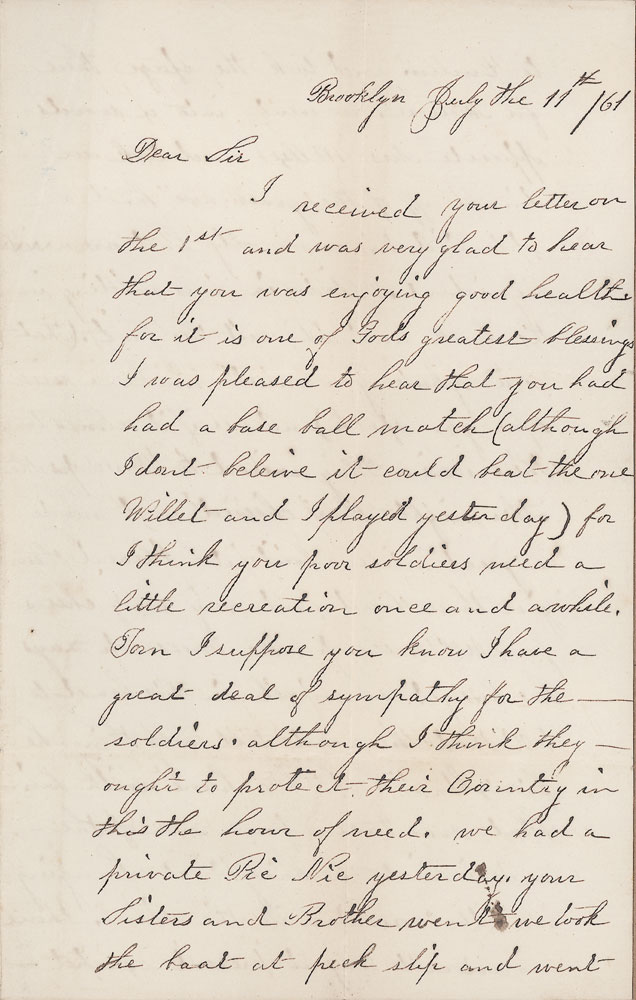 Brooklyn July the 11th /61
Dear Sir
I received your letter on
the 1st and was very glad to hear
that you was enjoying good health
for it is one of Gods greatest blessings
I was pleased to hear that you had
had a base ball match (although
I dont beleive it could beat the one
Willet and I played yesterday) for
I think you poor soldiers need a
little recreation once and awhile.
Tom I suppose you know I have a
great deal of sympathy for the —
soldiers. although I think they —
ought to protect their Country in
this the hour of need. we had a
private Pic Nic yesterday. your
Sisters and Brother went we took
the boat at peck slip and went